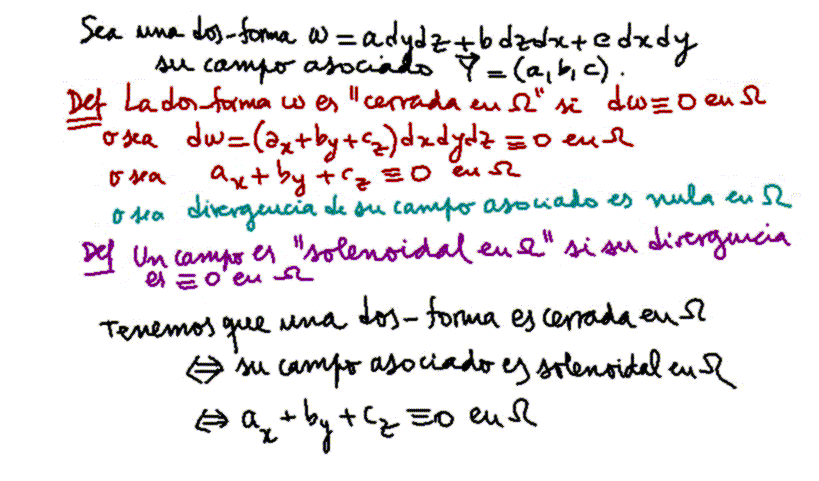 Sea una dos-forma ω = a dydz + b dzdx + c dxdy
su campo asociado Y⃗ = (a, b, c).
Def La dos-forma ω es "cerrada en Ω" si dω ≡ 0 en Ω
o sea dω = (ax + by + cz) dxdydz ≡ 0 en Ω
o sea ax + by + cz ≡ 0 en Ω
o sea divergencia de su campo asociado es nula en Ω
Def Un campo es "solenoidal en Ω" si su divergencia
es ≡ 0 en Ω
Tenemos que una dos-forma es cerrada en Ω
⇔ su campo asociado es solenoidal en Ω
⇔ ax + by + cz ≡ 0 en Ω